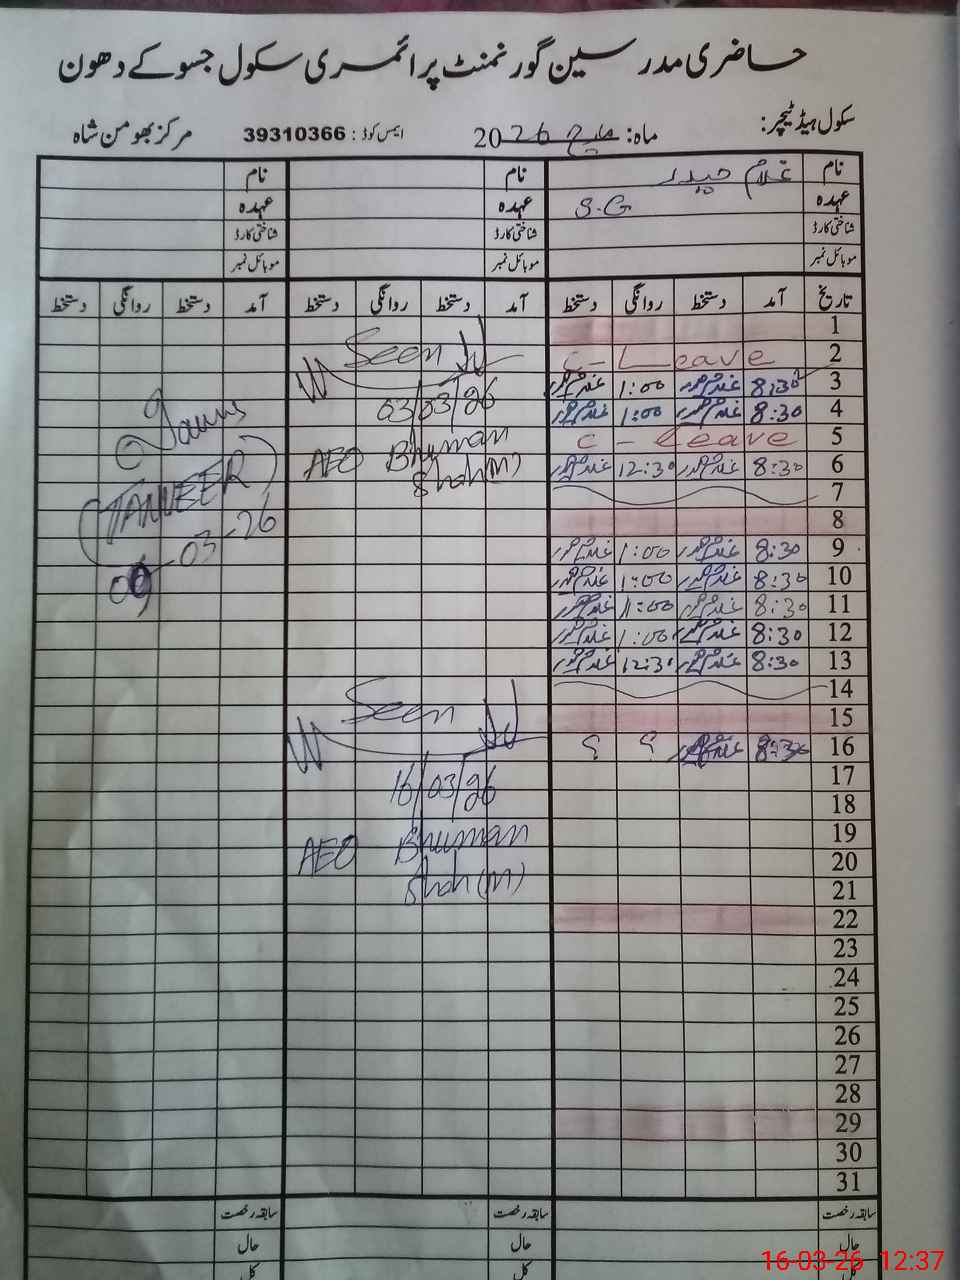 حاضری مدرسین گورنمنٹ پرائمری سکول جسو کے دھون
سکول ہیڈ ٹیچر:
ماہ: مارچ 2026 ایمس کوڈ : 39310366 مرکز بھومن شاہ
نام غلام حیدر نام نام
عہدہ S.G عہدہ عہدہ
شناختی کارڈ شناختی کارڈ شناختی کارڈ
موبائل نمبر موبائل نمبر موبائل نمبر
تاریخ آمد دستخط روانگی دستخط آمد دستخط روانگی دستخط آمد دستخط روانگی دستخط
1
2 C-Leave
3 8:30 غلام حیدر 1:00 غلام حیدر
4 8:30 غلام حیدر 1:00 غلام حیدر
5 C-Leave
6 8:30 غلام حیدر 12:30 غلام حیدر
7
8
9 8:30 غلام حیدر 1:00 غلام حیدر
10 8:30 غلام حیدر 1:00 غلام حیدر
11 8:30 غلام حیدر 1:00 غلام حیدر
12 8:30 غلام حیدر 1:00 غلام حیدر
13 8:30 غلام حیدر 12:30 غلام حیدر
14
15
16 8:30 غلام حیدر ؟ ؟
17
18
19
20
21
22
23
24
25
26
27
28
29
30
31
Seen
03/03/26
AEO Bhuman
Shah (M)
Seen
16/03/26
AEO Bhuman
Shah (M)
(TANVEER)
09-03-26
سابقہ رخصت سابقہ رخصت سابقہ رخصت
حال حال حال
کل کل کل
16-03-26 12:37